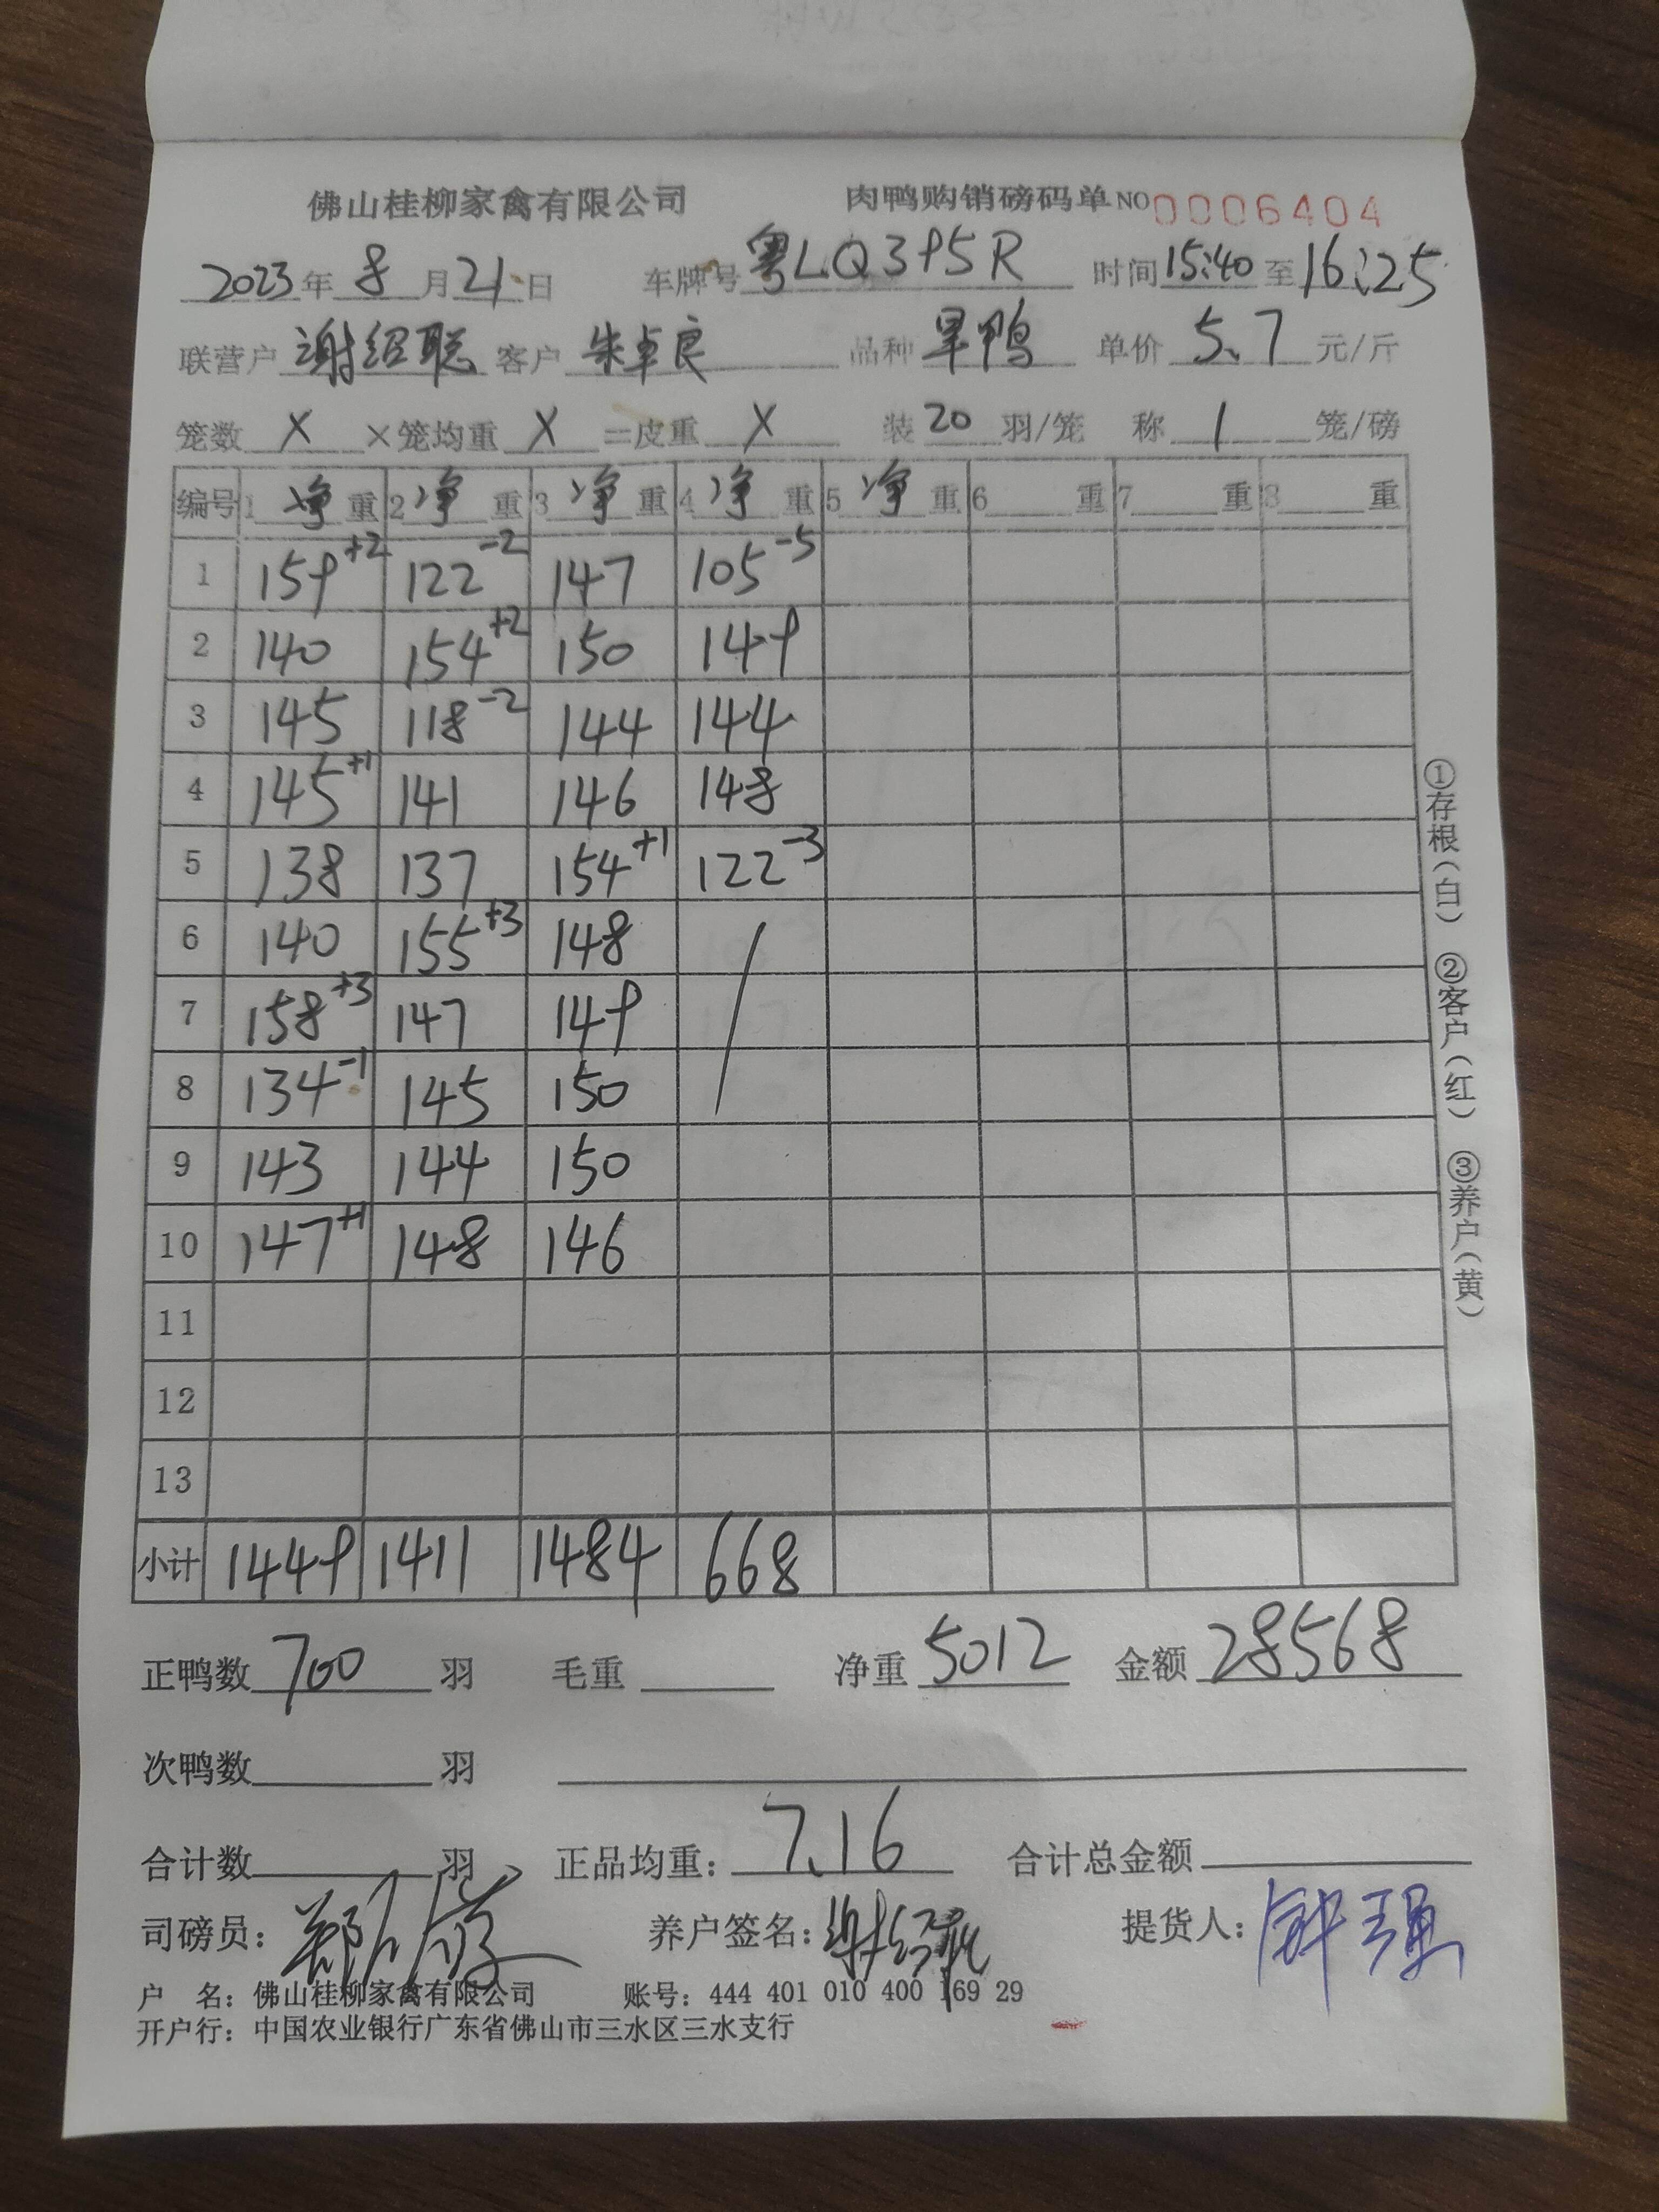 佛山桂柳家禽有限公司 肉鸭购销磅码单 NO 0006404
2023年 8月21日 车牌号 粤LQ395R 时间 15:40 至 16:25
联营户 谢绍聪 客户 朱卓良 品种 旱鸭 单价 5.7 元/斤
笼数 X ×笼均重 X =皮重 X 装 20 羽/笼 称 1 笼/磅
编号 1 净 重 2 净 重 3 净 重 4 净 重 5 净 重 6 重 7 重 8 重
1 159+2 122-2 147 105-5
2 140 154+2 150 149
3 145 118-2 144 144
4 145+1 141 146 148
5 138 137 154+1 122-3
6 140 155+3 148
7 158+3 147 149
8 134-1 145 150
9 143 144 150
10 147+1 148 146
11
12
13
小计 1449 1411 1484 668
①存根(白) ②客户(红) ③养户(黄)
正鸭数 700 羽 毛重 净重 5012 金额 28568
次鸭数 羽
合计数 羽 正品均重: 7.16 合计总金额
司磅员: 养户签名: 谢绍聪 提货人:
户 名: 佛山桂柳家禽有限公司 账号: 444 401 010 400 169 29
开户行: 中国农业银行广东省佛山市三水区三水支行